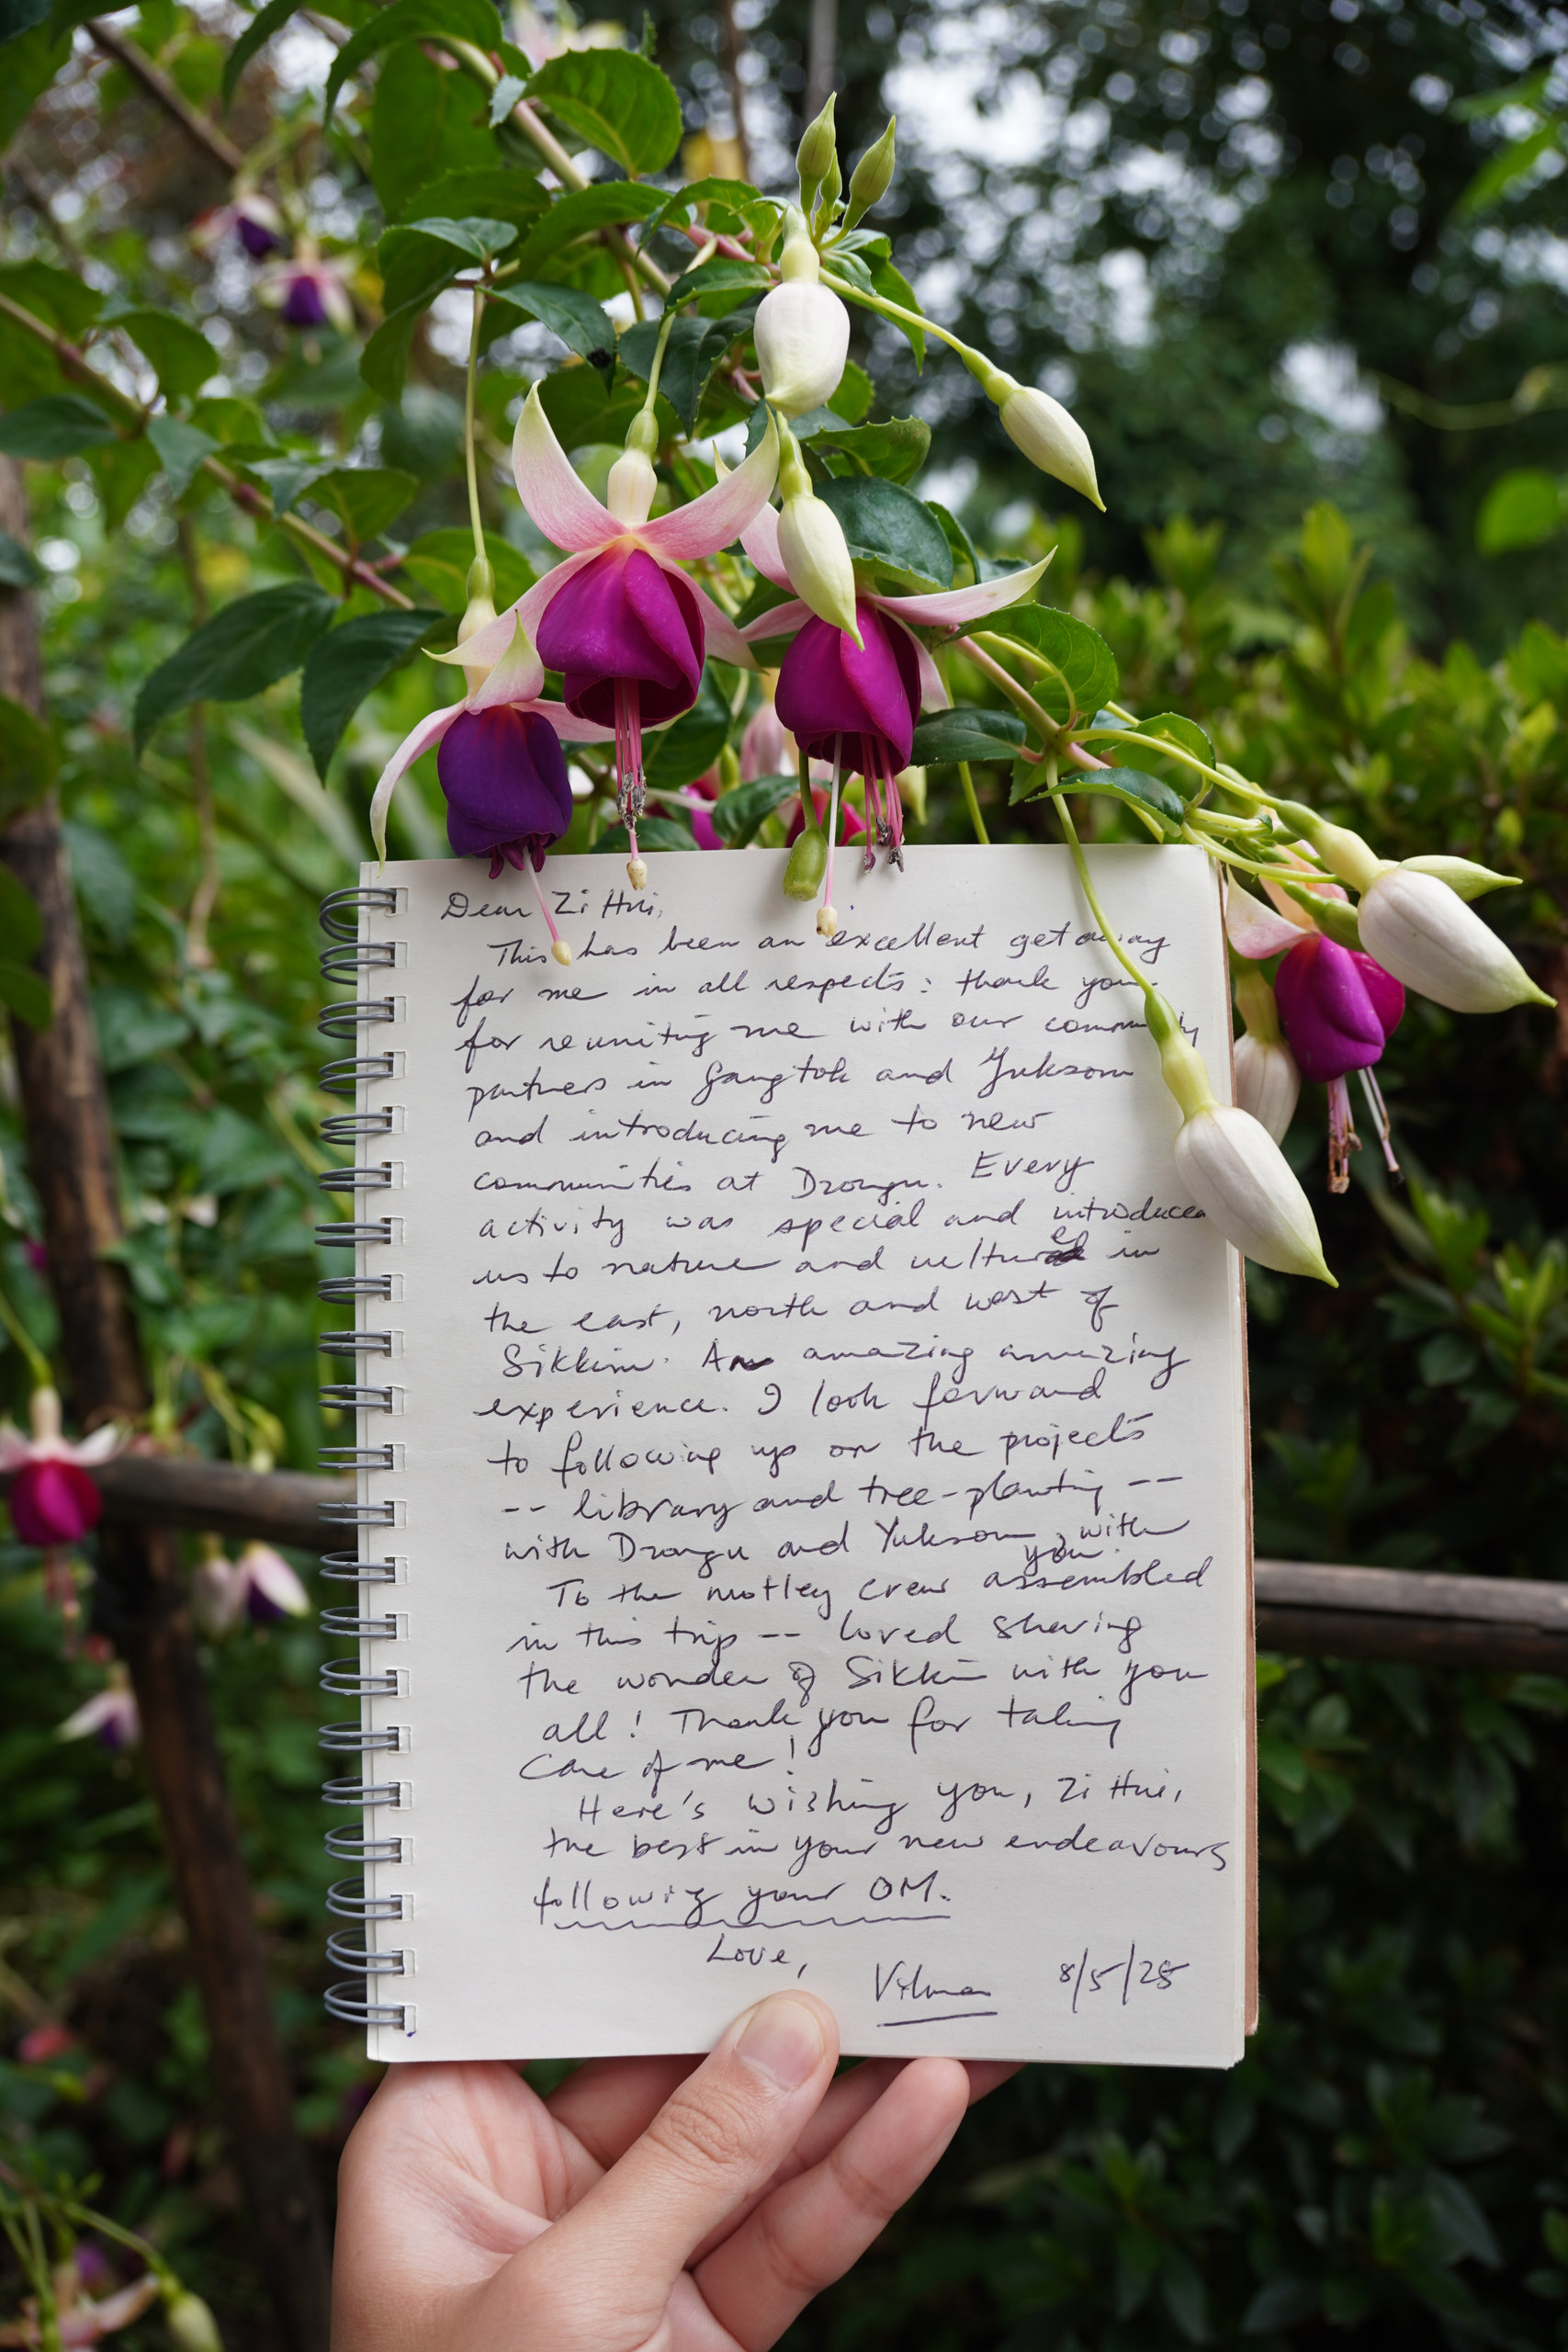 Dear Zi Hui,
This has been an excellent getaway
for me in all respects: thank you
for reuniting me with our community
partners in Gangtok and Yuksom
and introducing me to new
communities at Dzongu. Every
activity was special and introduced
us to nature and culture in
the east, north and west of
Sikkim. An amazing amazing
experience. I look forward
to following up on the projects
-- library and tree-planting --
with Dzongu and Yuksom, with
you.
To the motley crew assembled
in this trip -- loved sharing
the wonder of Sikkim with you
all! Thank you for taking
care of me!
Here's wishing you, Zi Hui,
the best in your new endeavours
following your OM.
Love,
Vilma 8/5/25